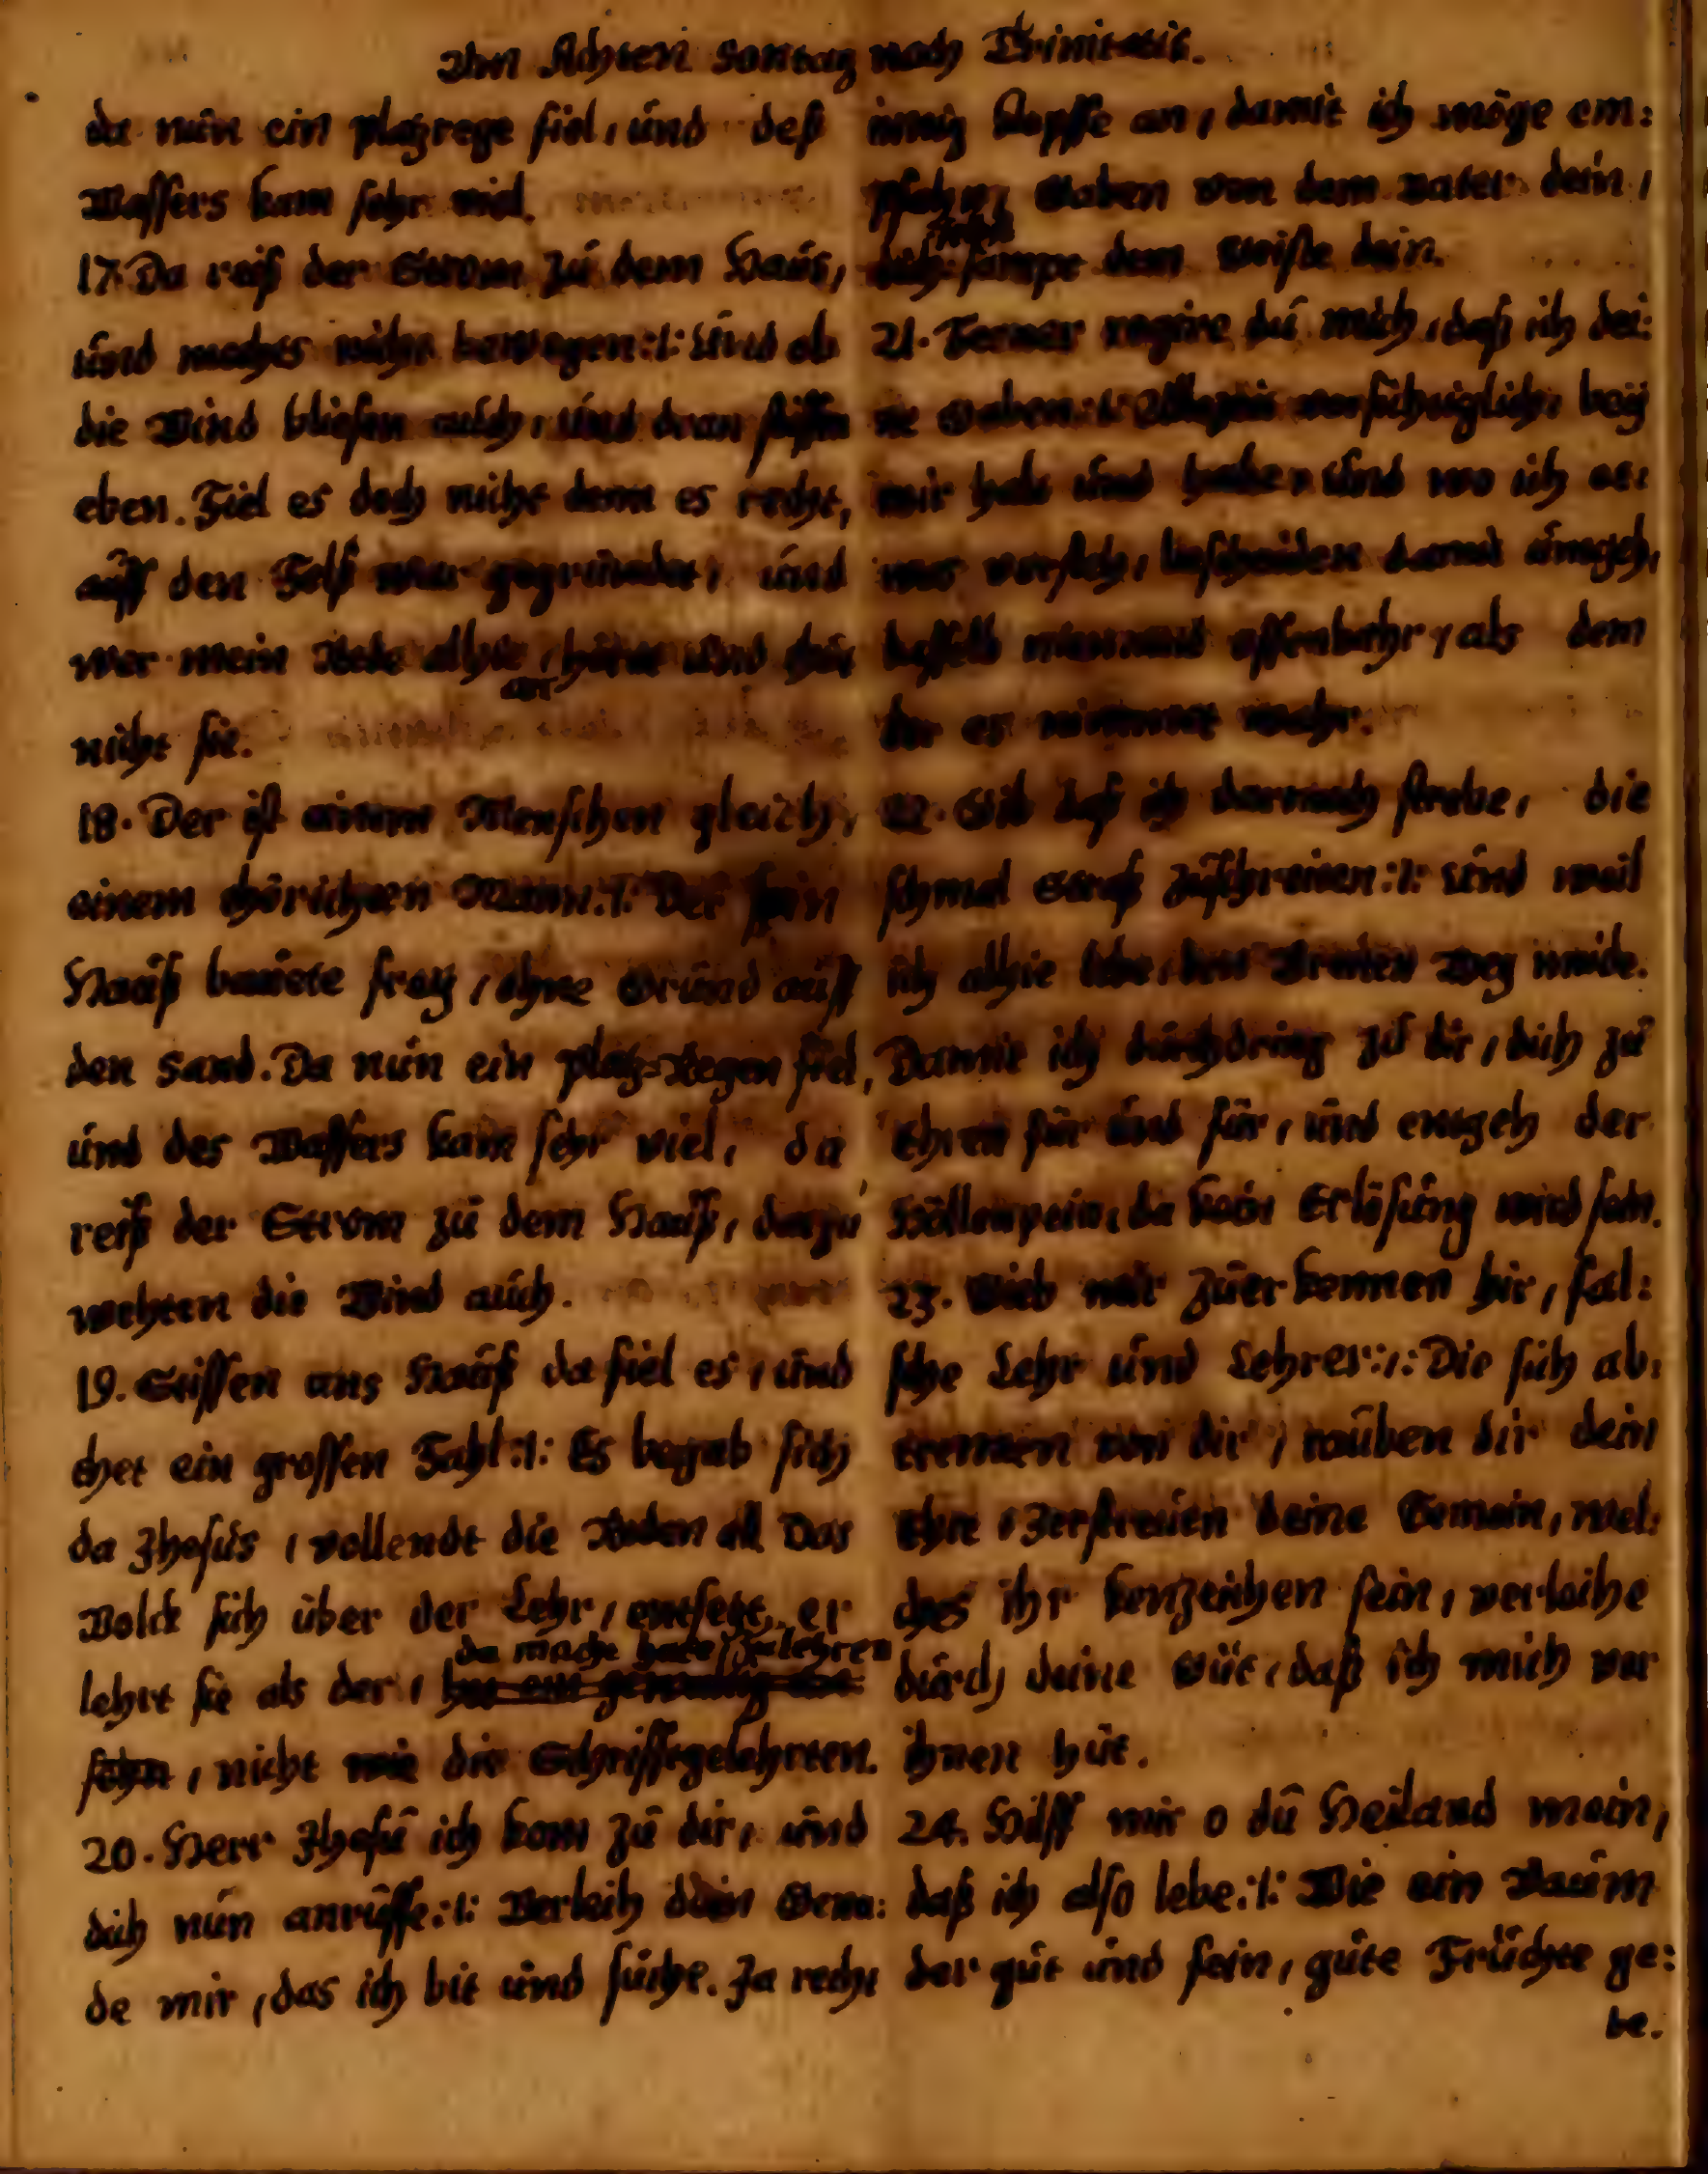 Am Achten Sontag nach Trinitatis.
da nun ein platzrege fiel, und deß
Wassers kam sehr viel.
17. Da reiß der Strom zu dem Haus,
und mochts nicht bewegen :/: Und ob
die Wind bliesen auch, und dran stissen
eben. Fiel es doch nicht denn es recht,
auff den Felß war gegründet, und
wer mein Rede alhie, höret und thut
an
nicht sie.
18. Der ist einem Menschen gleich,
einem thörichten Mann :/: Der sein
Hauß bauete frey, ohne Grund auff
den Sand. Da nun ein platz-Regen fiel,
und des Wassers kam sehr viel, da
reiß der Strom zu dem Hauß, darzu
wehten die Wind auch.
19. Stissen ans Hauß da fiel es, und
thet ein grossen Fahl :/: Es begab sich
da Jhesus, vollendt die Reden all Das
Volck sich über der Lehr, entsetzt, er
da macht hatt zu lehren
lehrt sie als der,
, nicht wie die Schrifftgelehrten.
20. Herr Jhesu ich kom zu dir, und
dich nun anruffe :/: Verleih dein Gena:
de mir, das ich bit und suche. Ja recht
innig klopffe an, damit ich möge em:
pfahn, Gaben von dem Vater dein,
sampt dem Geiste dein.
21. Ferner regire du mich, daß ich dei:
ne Gaben :/: Allezeit vorsichtiglich, bey
mir halt und habe, Und wo ich et:
was versteh, bescheiden damit umgeh,
dasselb niemand offenbahr, als dem
der es nimmet wahr.
22. Gib daß ich darnach strebe, die
schmal Straß zuschreiten :/: Und weil
ich alhie lebe, den Breiten Weg meide.
Damit ich durchdring zu dir, dich zu
Ehren für und für, und entgeh der
Höllenpein, da kein Erlösung wird sein.
23. Gieb mir zuerkennen hir, fal:
sche Lehr und Lehrer :/: Die sich ab:
trennen von dir, rauben dir dein
Ehre, Zerstreuen deine Gemein, wel:
ches ihr kenzeichen sein, verleihe
durch deine Güt, daß ich mich vor
ihnen hüt.
24. Hilff mir o du Heiland mein,
daß ich also lebe :/: Wie ein Baum
der gut und fein, gute Früchte ge:
be.